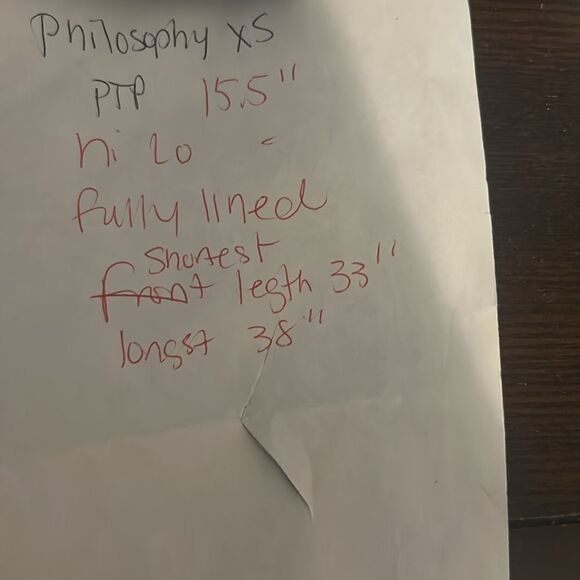 Philosophy XS
PTP 15.5"
hi Lo
fully lined
shortest
front legth 33"
longst 38"